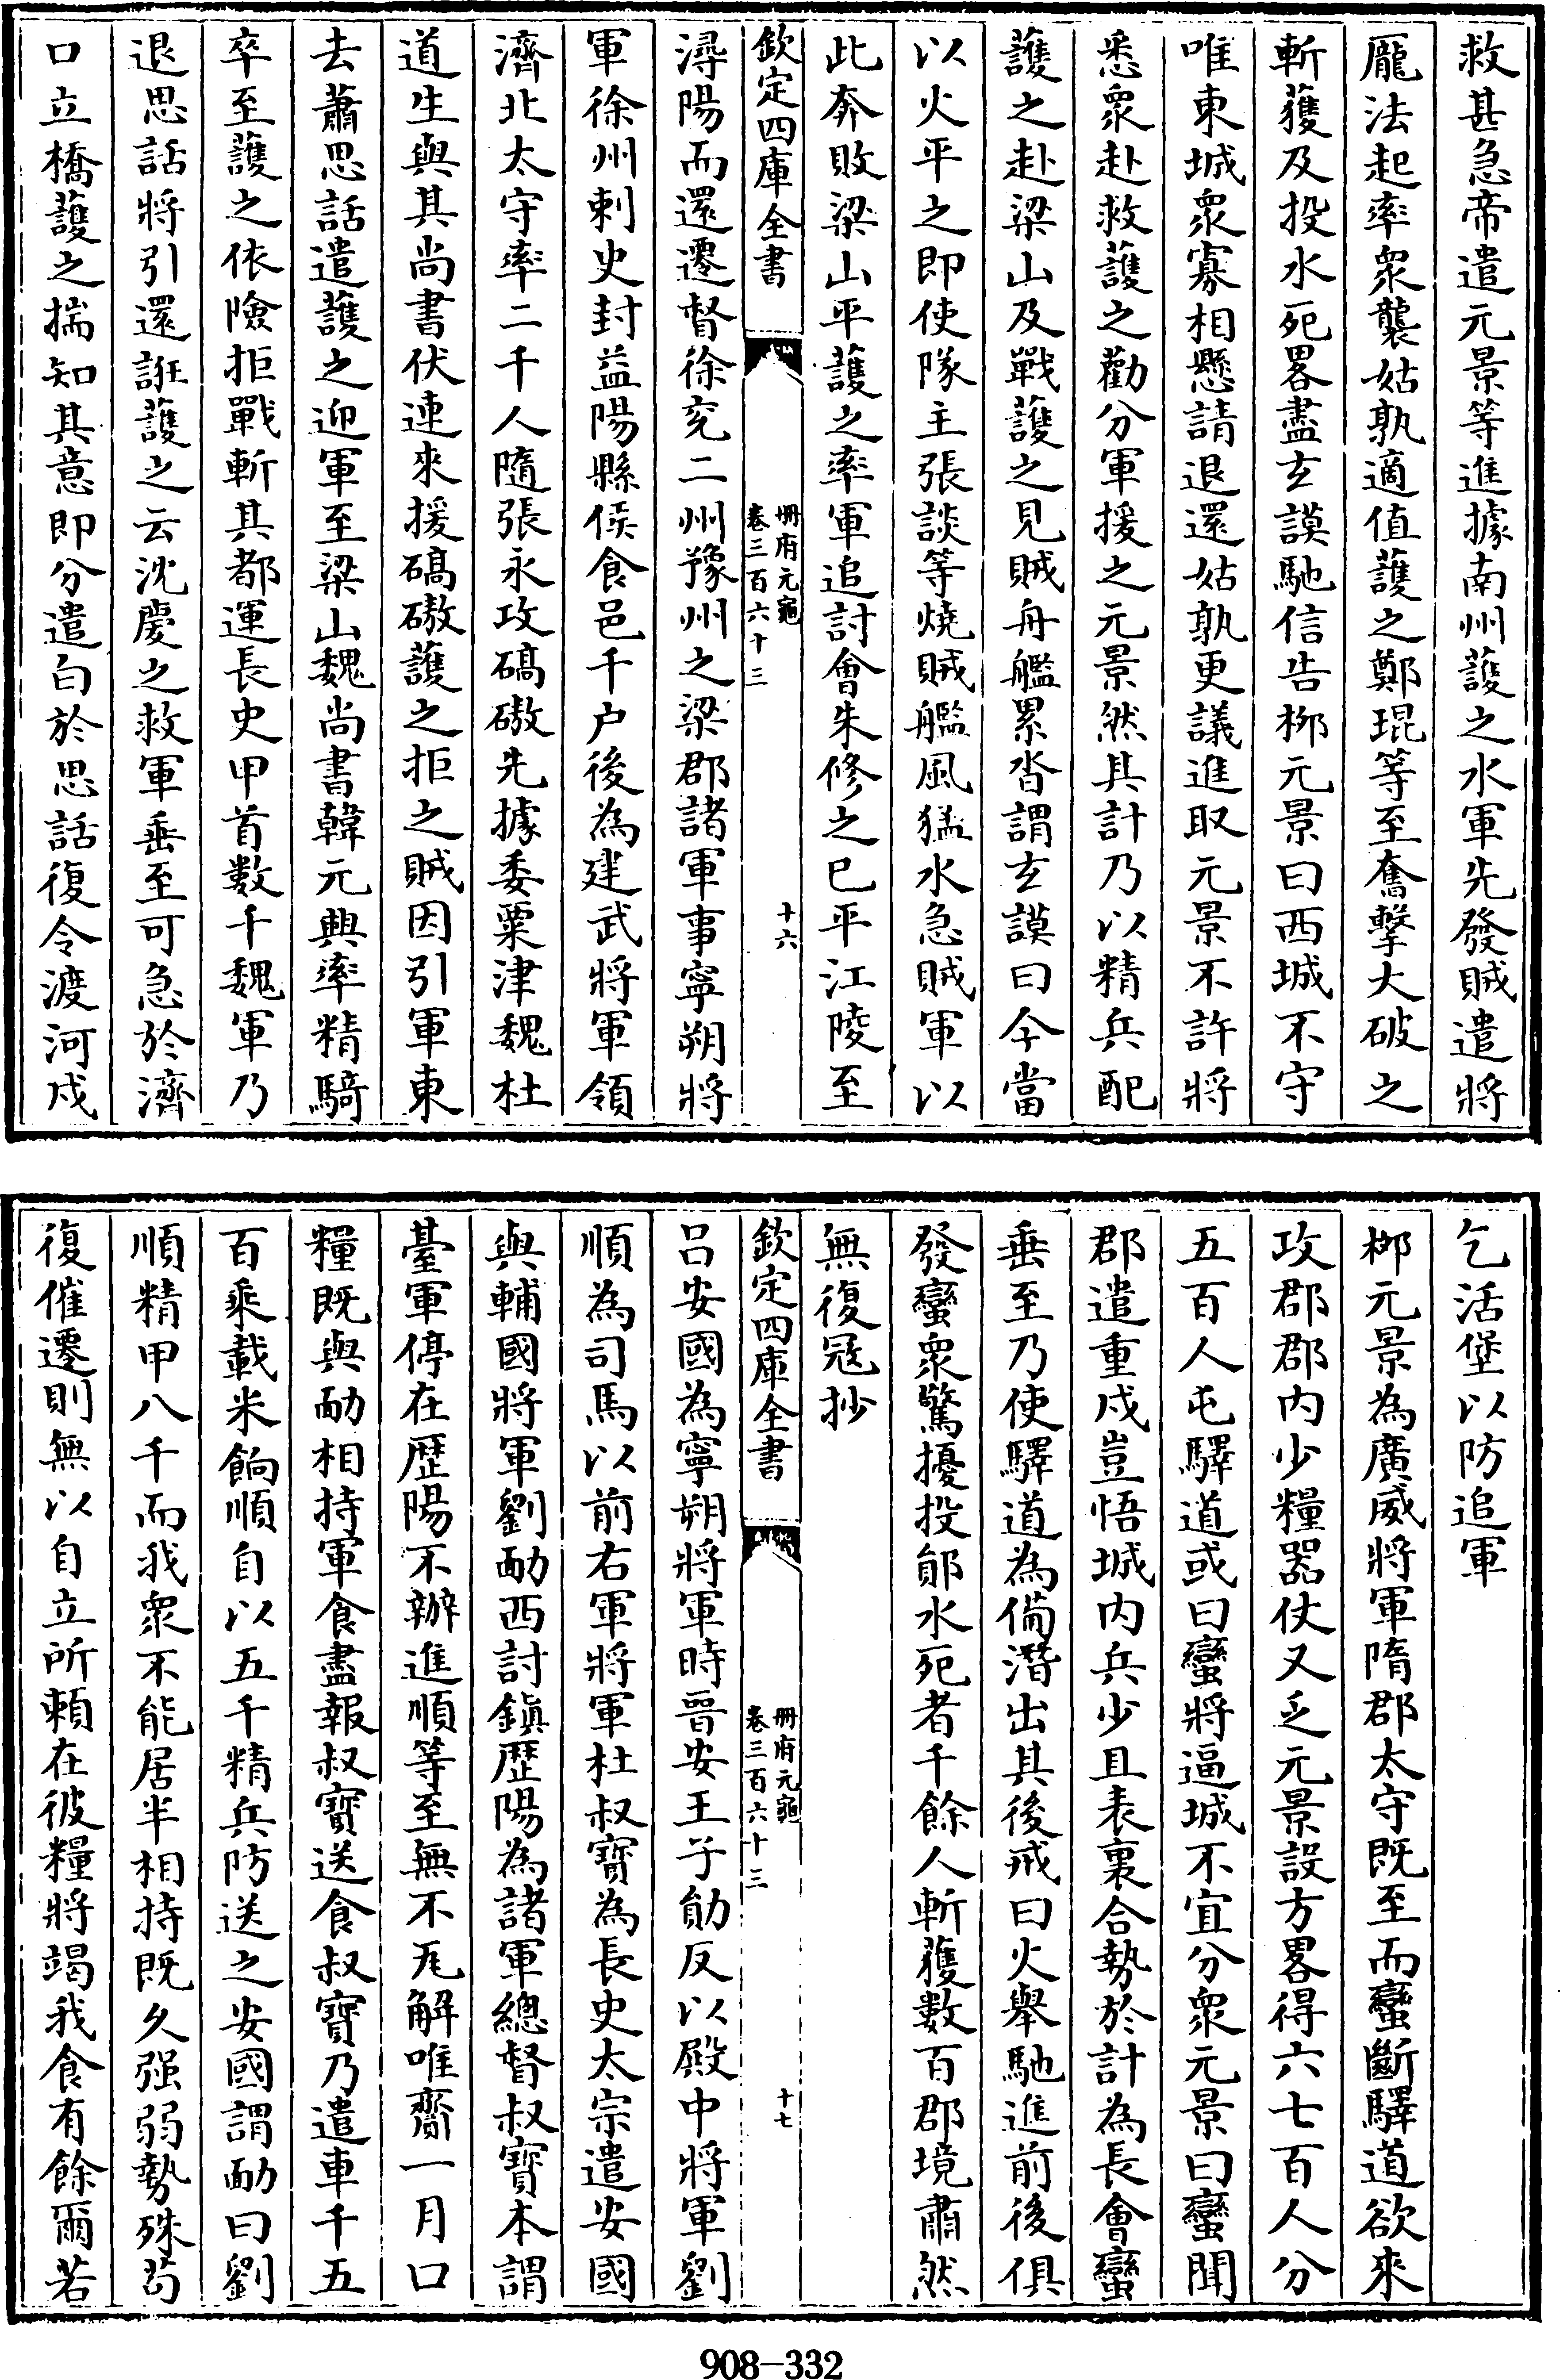 救甚急帝遣元景等進據南州䕶之水軍先發賊遣將
龎法起率衆襲姑孰適值䕶之鄭琨等至奮擊大破之
斬獲及投水死畧盡玄謨馳信告柳元景曰西城不守
唯東城衆寡相懸請退還姑孰更議進取元景不許將
悉衆赴救䕶之勸分軍援之元景然其計乃以精兵配
䕶之赴梁山及戰䕶之見賊舟艦累沓謂玄謨曰今當
以火平之即使隊主張談等燒賊艦風猛水急賊軍以
此奔敗梁山平䕶之率軍追討會朱修之已平江陵至
欽定四庫全書
冊府元龜
卷三百六十三
十六
潯陽而還遷督徐兖二州豫州之梁郡諸軍事寧朔將
軍徐州刺史封益陽縣侯食邑千户後為建武將軍領
濟北太守率二千人隨張永攻碻磝先據委粟津魏杜
道生與其尚書伏連來援碻磝䕶之拒之賊因引軍東
去蕭思話遣䕶之迎軍至梁山魏尚書韓元興率精騎
卒至䕶之依險拒戰斬其都運長史甲首數千魏軍乃
退思話將引還誑䕶之云沈慶之救軍垂至可急於濟
口立橋䕶之揣知其意即分遣白於思話復令渡河戍
乞活堡以防追軍
柳元景為廣威將軍隋郡太守既至而蠻斷驛道欲來
攻郡郡内少糧器仗又乏元景設方畧得六七百人分
五百人屯驛道或曰蠻將逼城不宜分衆元景曰蠻聞
郡遣重戍豈悟城内兵少且表裏合勢於計為長會蠻
垂至乃使驛道為備潛出其後戒曰火舉馳進前後俱
發蠻衆驚擾投鄖水死者千餘人斬獲數百郡境肅然
無復冦抄
欽定四庫全書
冊府元龜
卷三百六十三
十七
吕安國為寧朔將軍時晉安王子勛反以殿中將軍劉
順為司馬以前右軍將軍杜叔寶為長史太宗遣安國
與輔國將軍劉勔西討鎮歷陽為諸軍總督叔寶本謂
臺軍停在歷陽不辦進順等至無不瓦解唯齎一月口
糧既與勔相持軍食盡報叔寶送食叔寶乃遣車千五
百乘載米餉順自以五千精兵防送之安國謂勔曰劉
順精甲八千而我衆不能居半相持既久强弱勢殊茍
復催遷則無以自立所賴在彼糧將竭我食有餘爾若
908-332